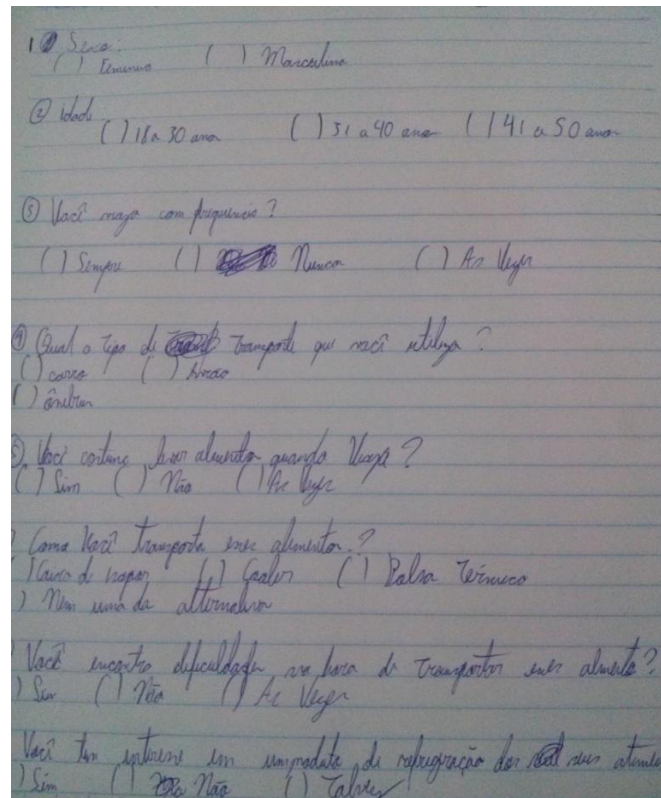 1 Sexo:
( ) Feminino ( ) Masculino
② Idade
( ) 18 a 30 anos ( ) 31 a 40 anos ( ) 41 a 50 anos
③ Você viaja com frequencia?
( ) Sempre ( ) Nunca ( ) As Vezes
④ Qual o tipo de transporte que você utiliza?
( ) carro ( ) Avião
( ) ônibus
⑤ Você costuma levar alimentos quando Viaja?
( ) Sim ( ) Não ( ) As Vezes
Como Você transporta esses alimentos?
) Caixa de isopor ( ) Cooler ( ) Bolsa Térmica
) Nem uma da alternativa
Você encontra dificuldades na hora de transportar esses alimento?
) Sim ( ) Não ( ) As Vezes
Você tem interesse em um produto de refrigeração dos seus alimen
) Sim ( ) Não ( ) Talvez